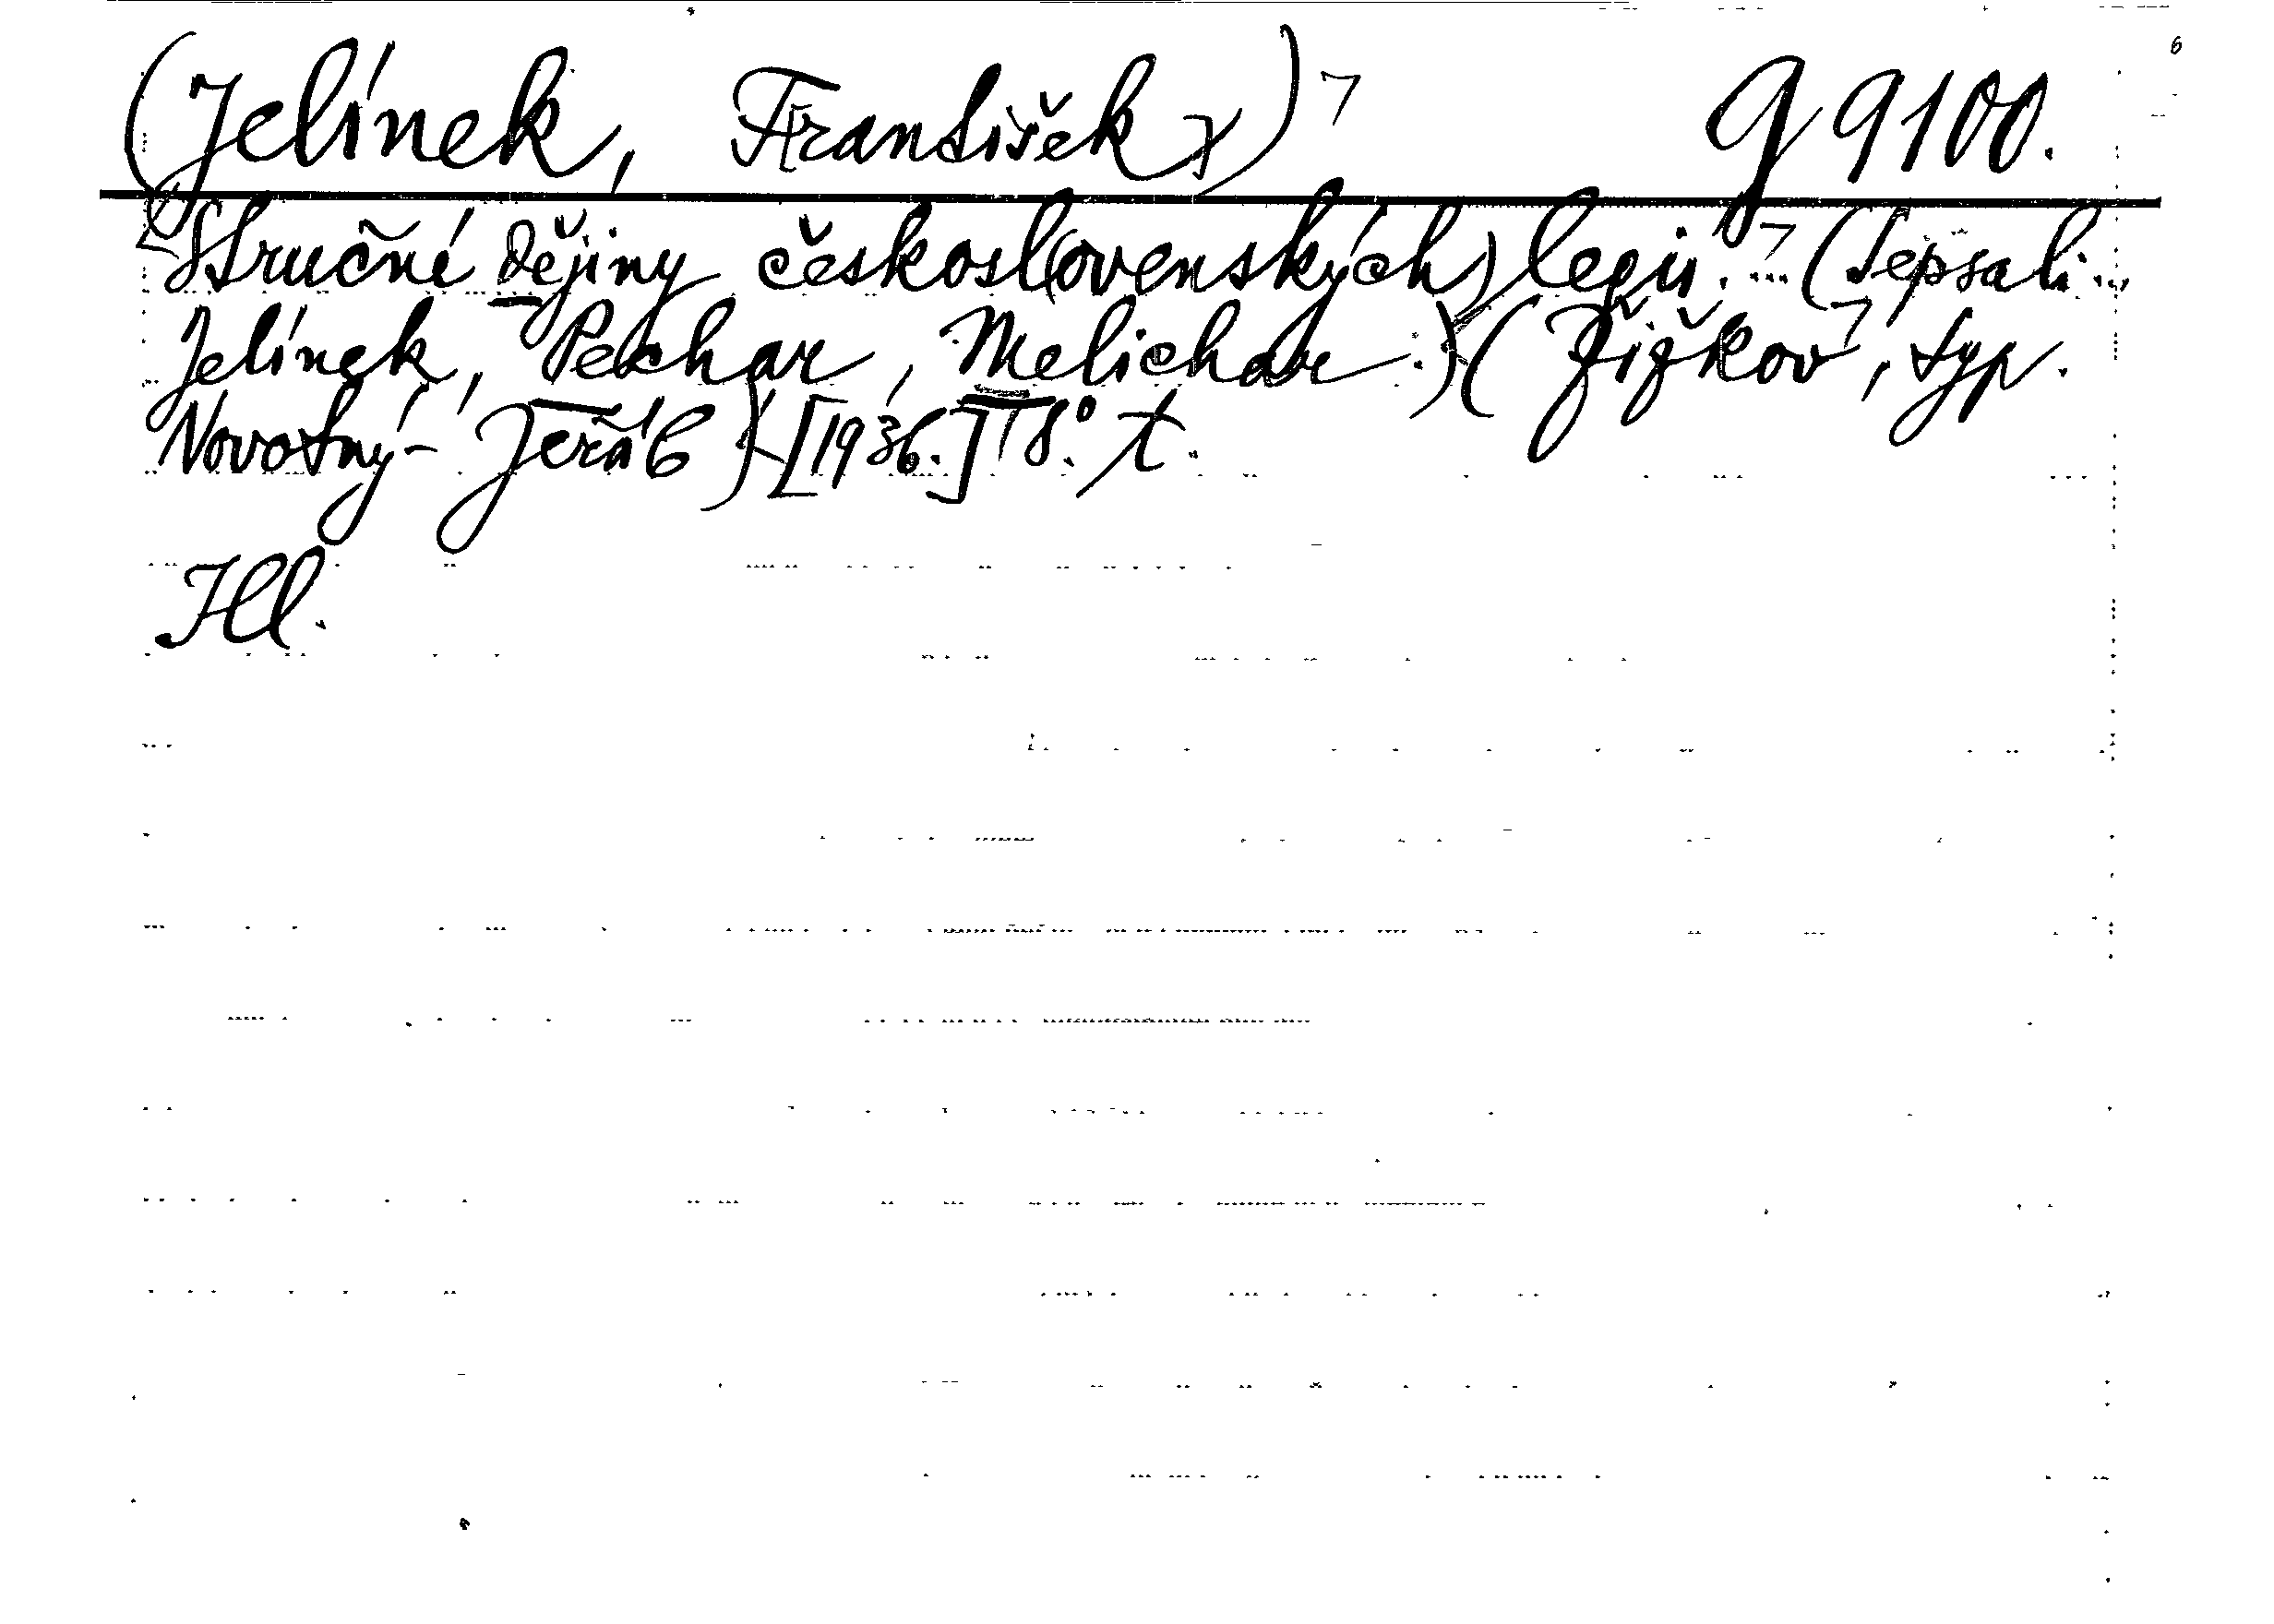 (Jelínek, František x) g 9100.
Stručné dějiny českosl(ovenských) legií. ... (Sepsali...
Jelínek, Pechar, Melichar.) (Žižkov, typ.
Novotný - Jeřáb) [1936.] 8°. t.
Hl.